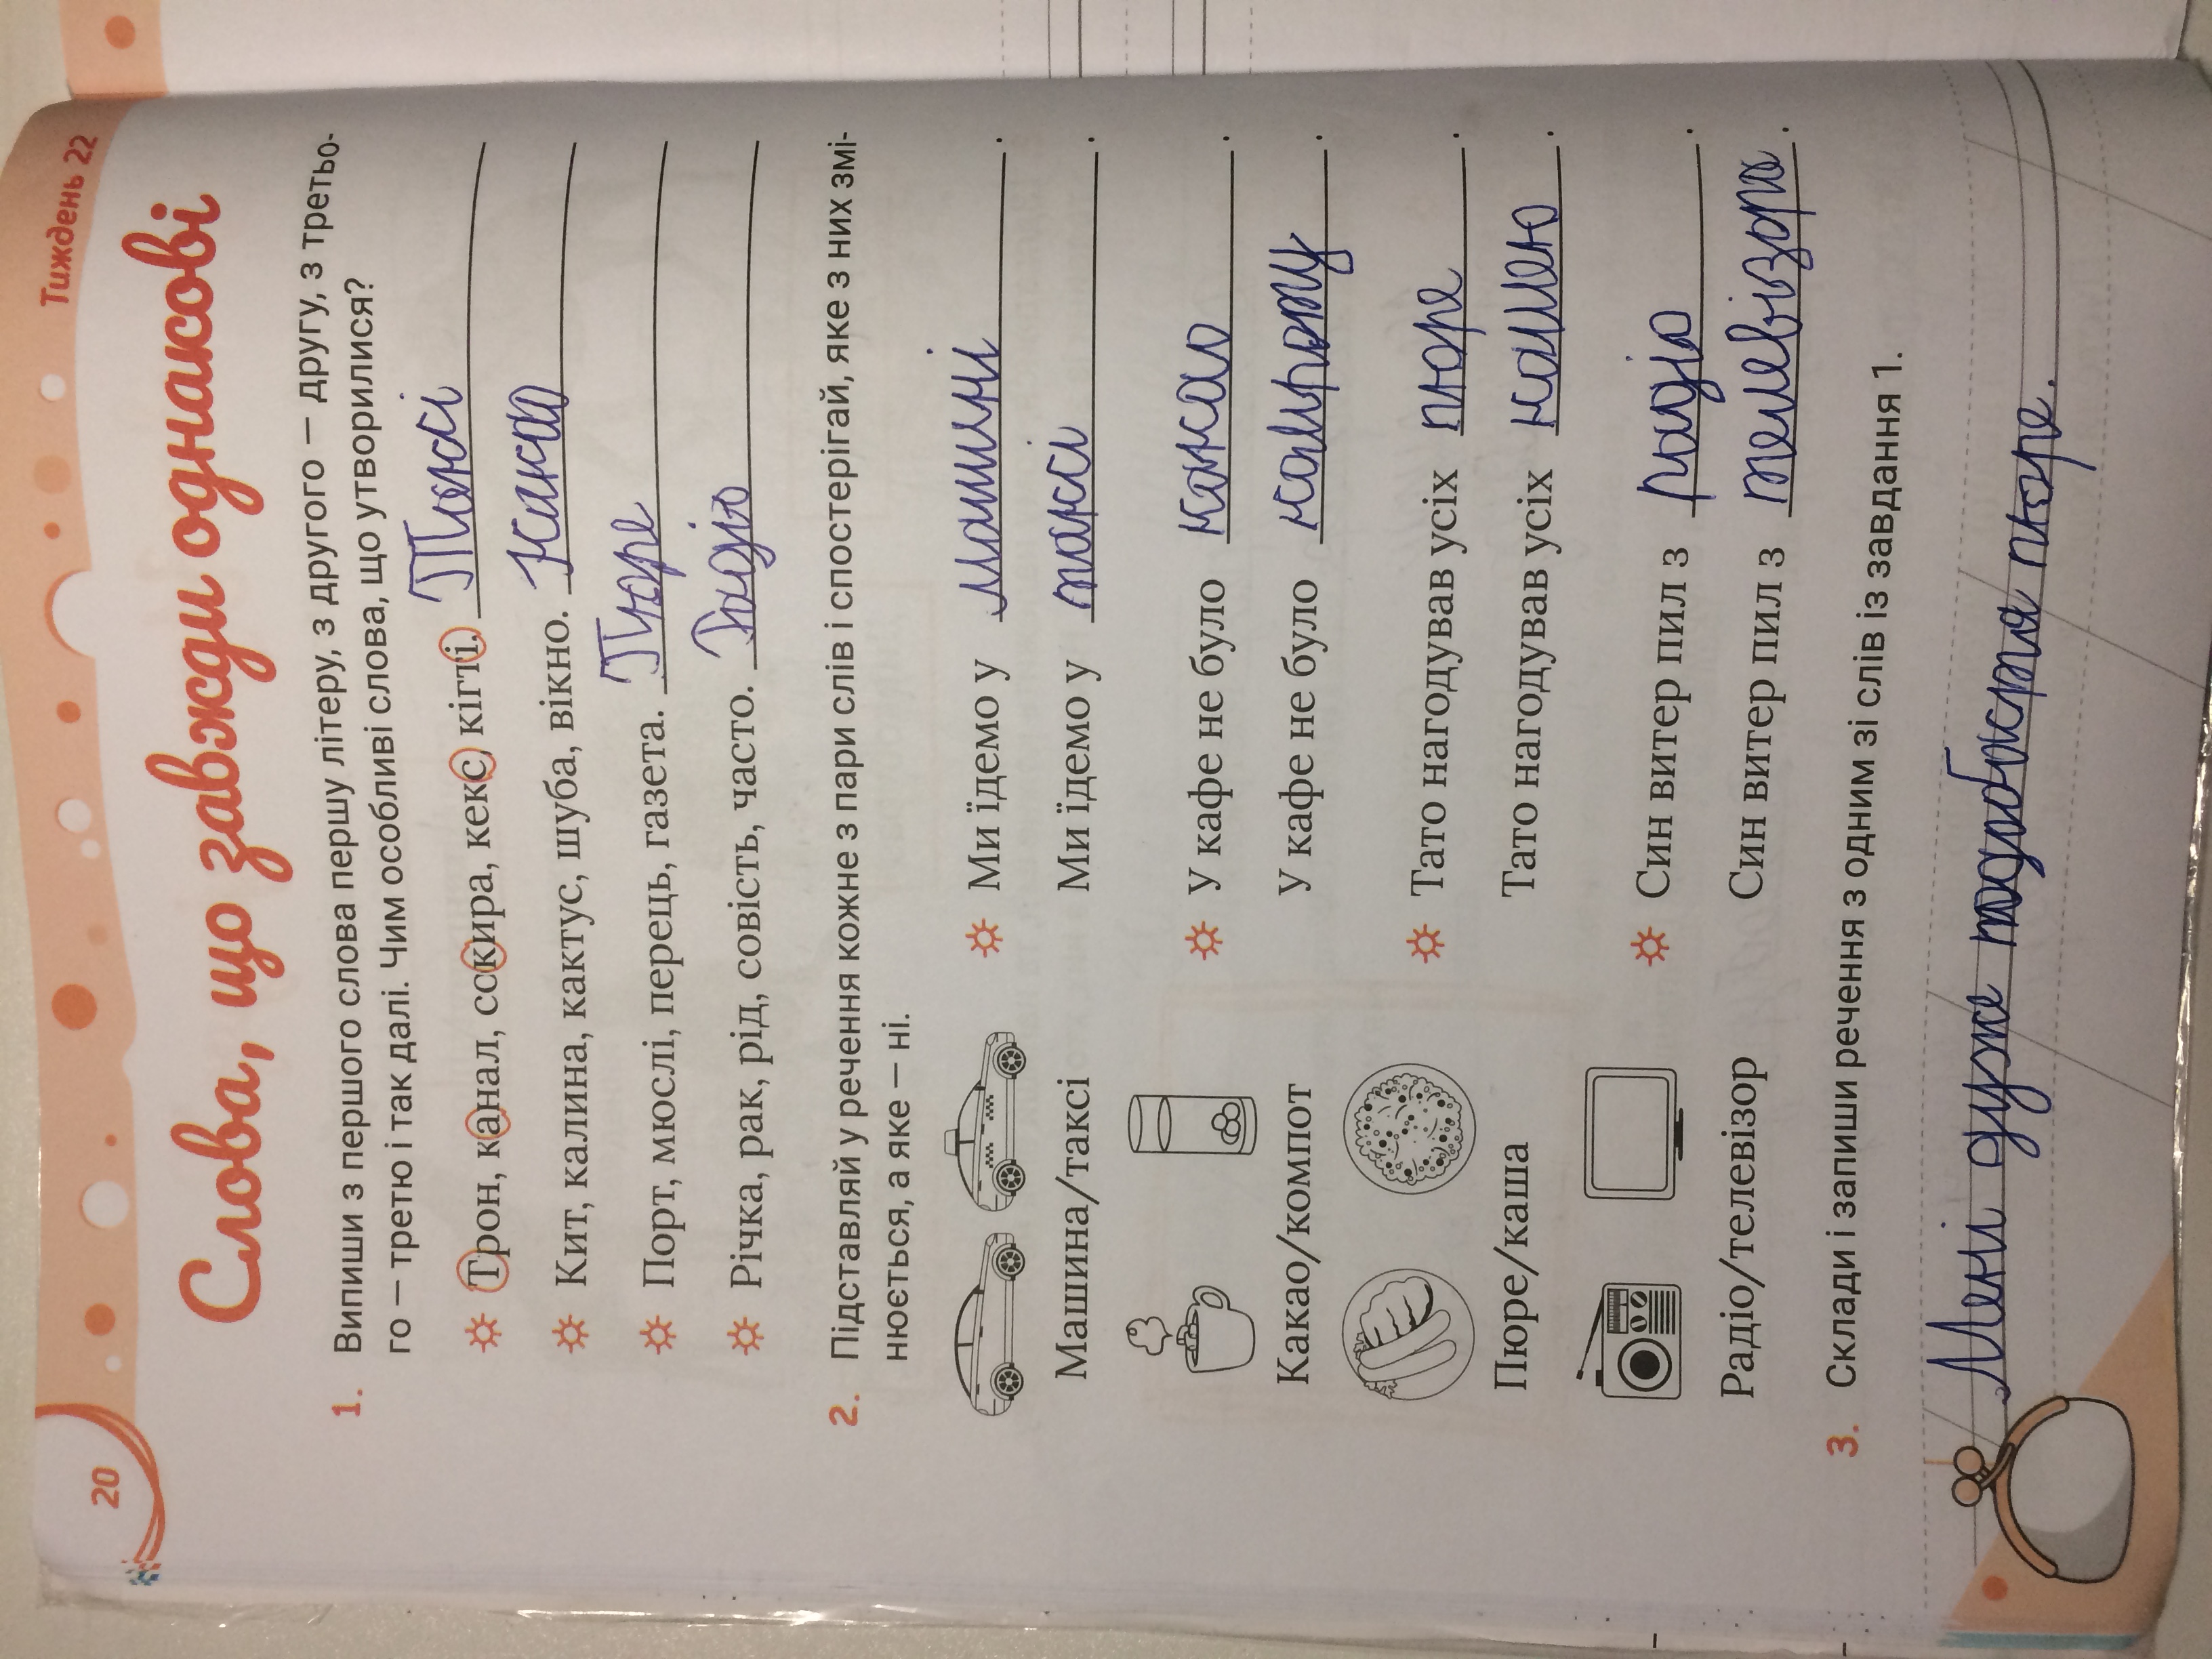 20
Тиждень 22
Слова, що завжди однакові
1. Випиши з першого слова першу літеру, з другого — другу, з третьо-
го — третю і так далі. Чим особливі слова, що утворилися?
Трон, канал, сокира, кекс, кігті. Таксі
Кит, калина, кактус, шуба, вікно. Какао
Порт, мюслі, перець, газета. Пюре
Річка, рак, рід, совість, часто. Радіо
2. Підставляй у речення кожне з пари слів і спостерігай, яке з них змі-
нюється, а яке — ні.
Машина/таксі
Ми їдемо у машині.
Ми їдемо у таксі.
Какао/компот
У кафе не було какао.
У кафе не було
Пюре/каша
Тато нагодував усіх пюре.
Тато нагодував усіх кашею.
Радіо/телевізор
Син витер пил з радіо.
Син витер пил з телевізора.
3. Склади і запиши речення з одним зі слів із завдання 1.
Мені дуже пюре.